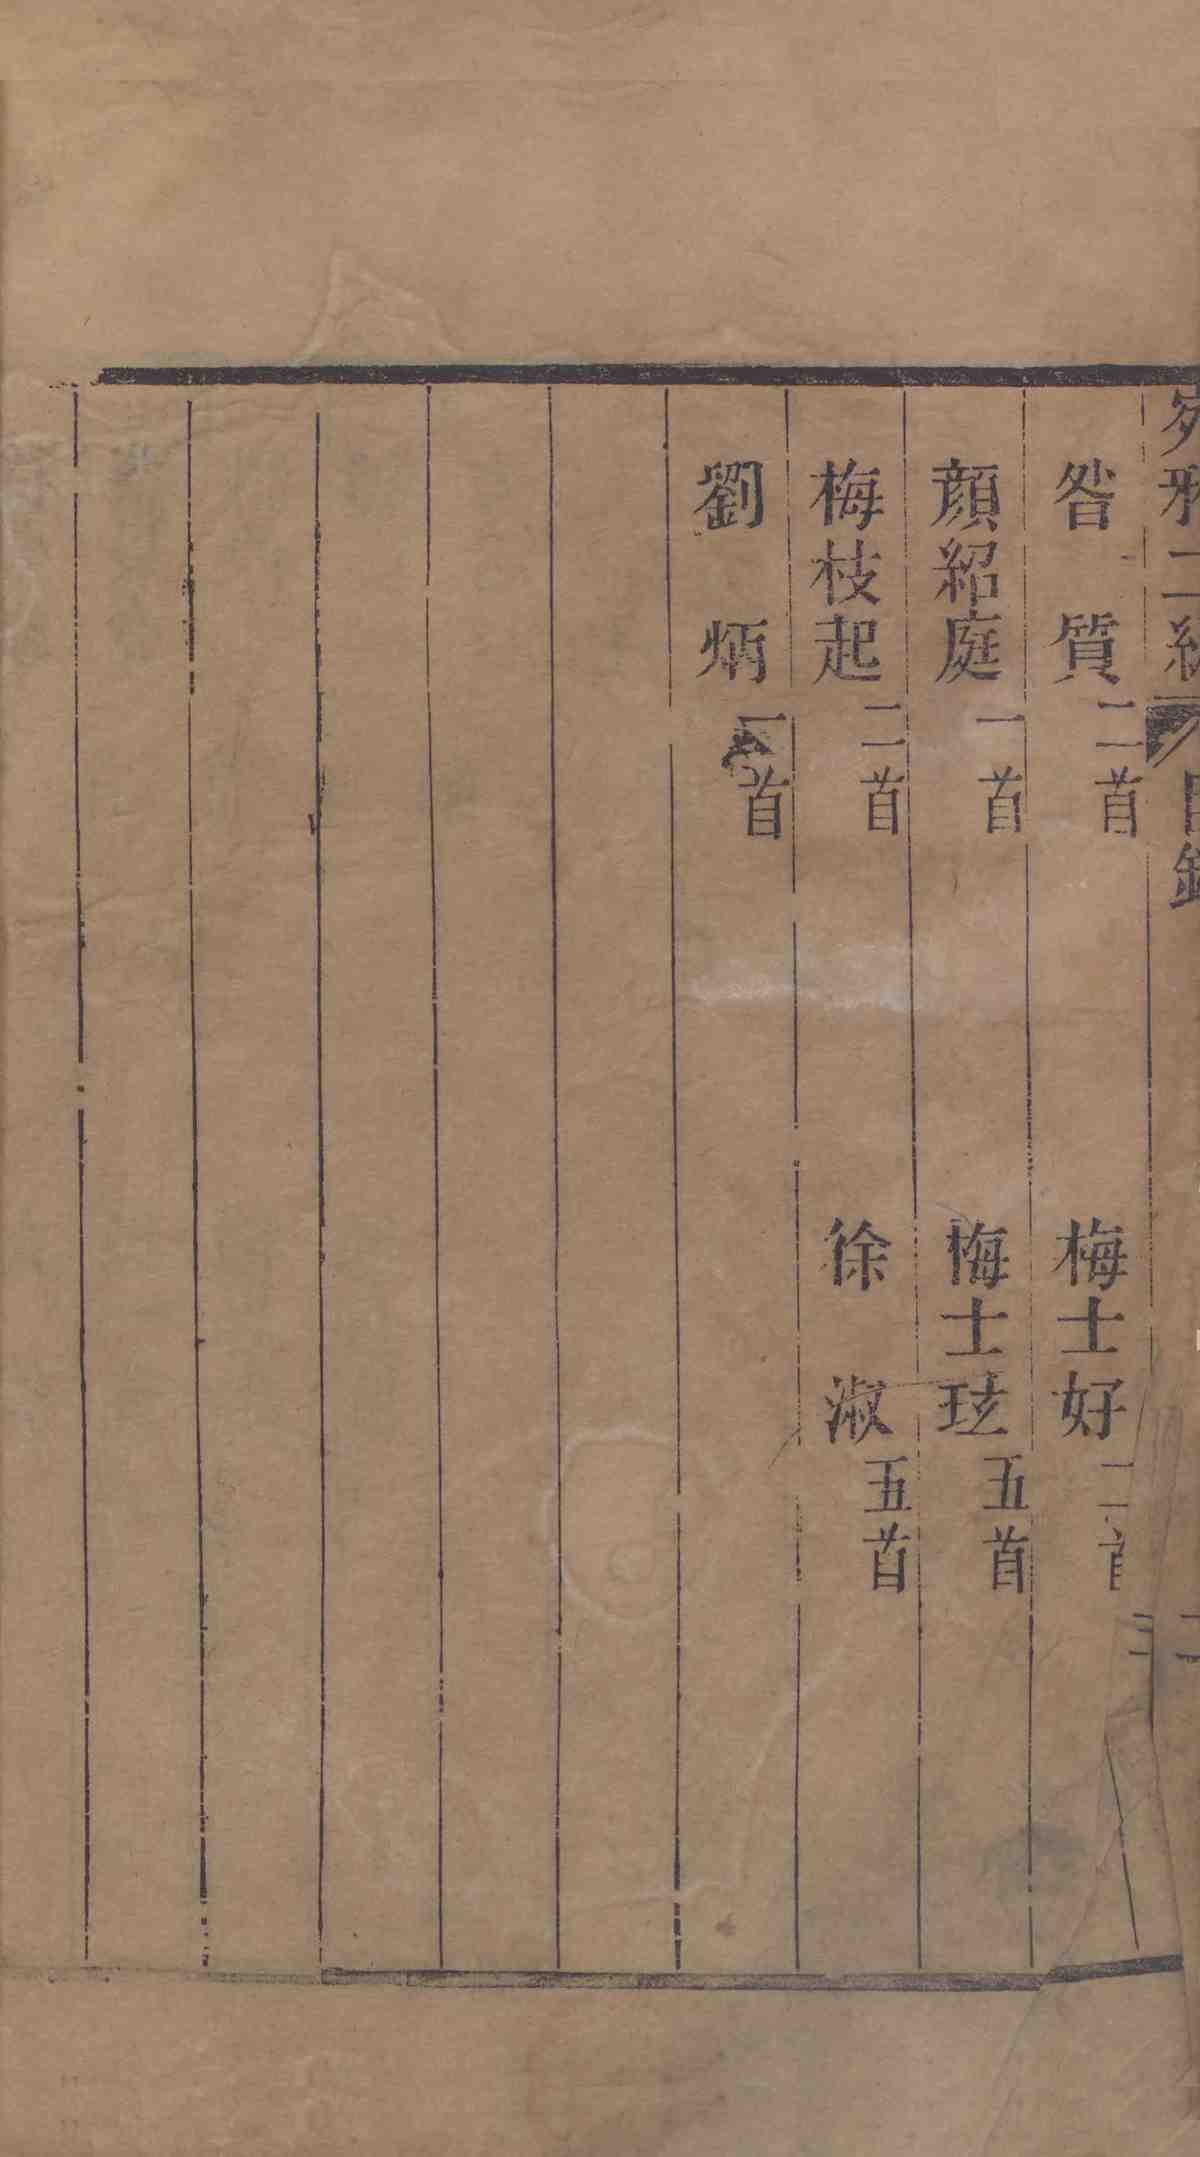 宛雅二編 目錄 二
昝質 二首 梅士好 二首
顔紹庭 一首 梅士玹 五首
梅枝起 二首 徐淑 五首
劉炳 一首